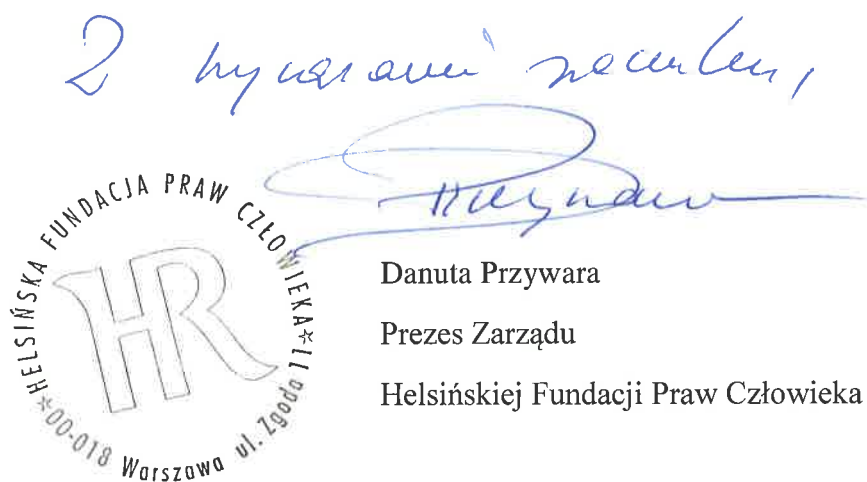 Z wyrazami szacunku,
HELSIŃSKA FUNDACJA PRAW CZŁOWIEKA
*00-018 Warszawa ul. Zgoda 11*
HR
Danuta Przywara
Prezes Zarządu
Helsińskiej Fundacji Praw Człowieka